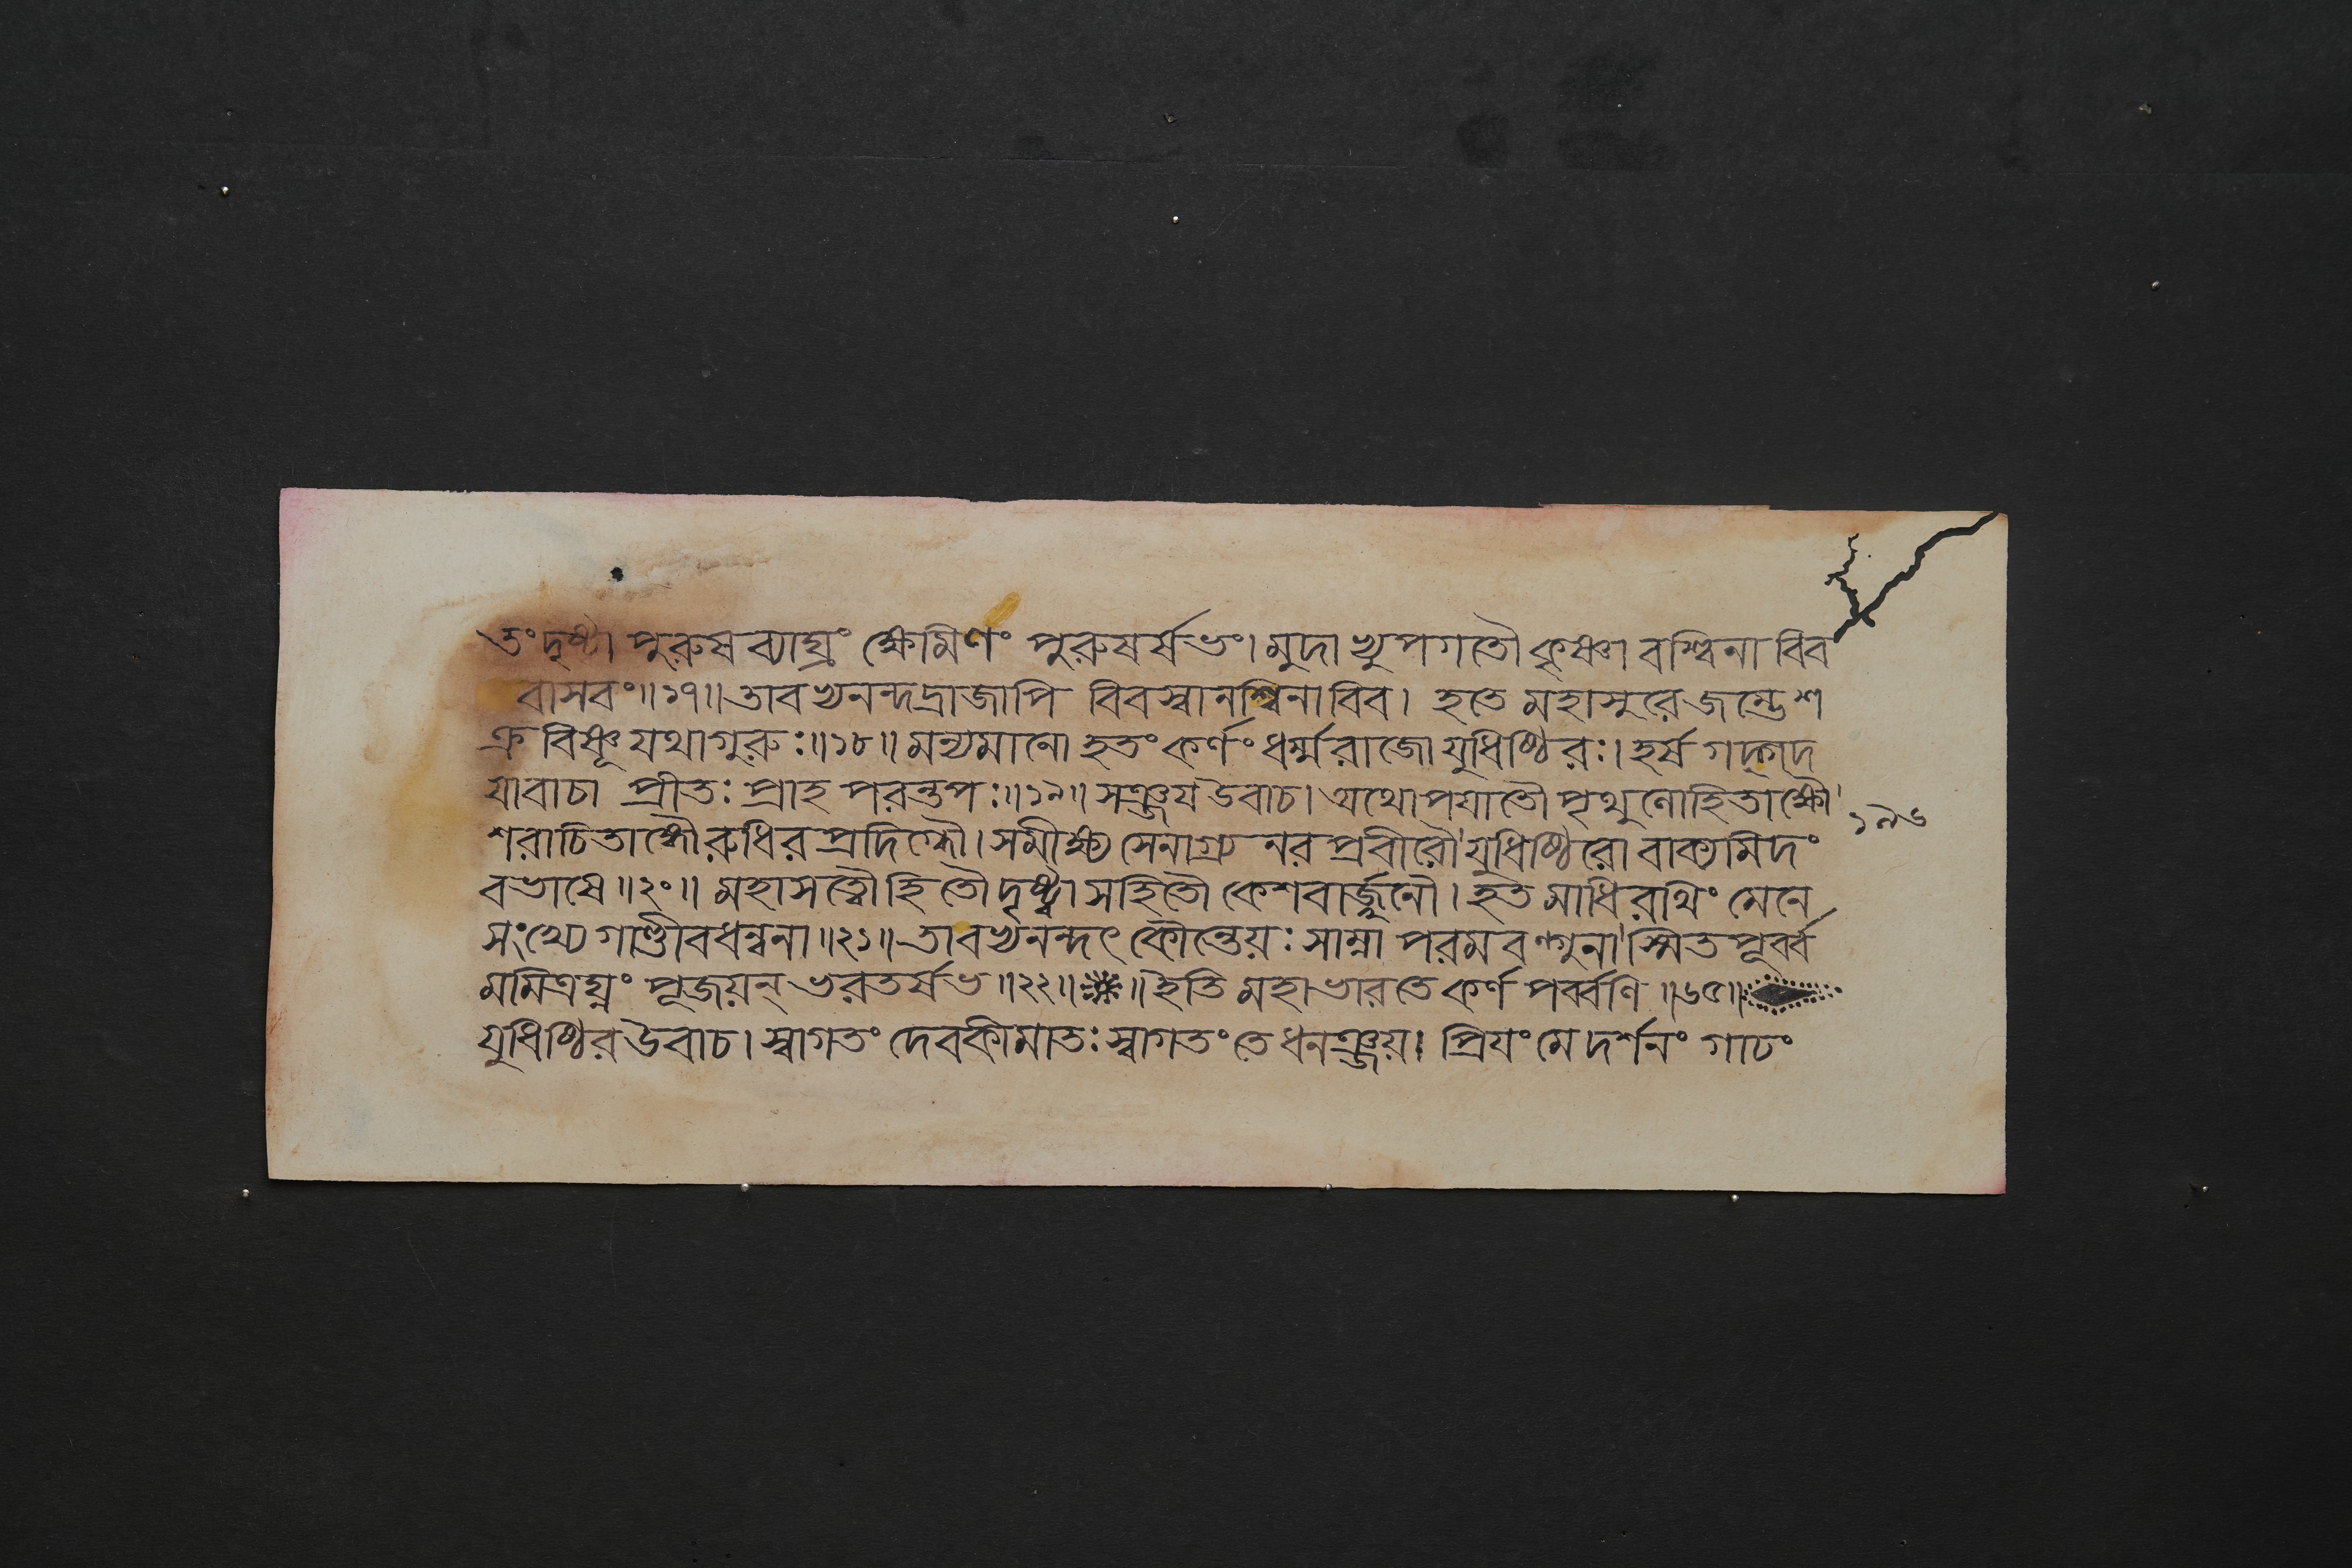 তং দৃষ্ট্বা পুরুষব্যাঘ্রং ক্ষেমিণং পুরুষর্ষভং। মুদাভ্যুপগতৌ কৃষ্ণা বশ্বিনাবিব
বাসবং॥১৭॥ তাবভ্যনন্দদ্রাজাপি বিবস্বানশ্বিনাবিব। হতে মহাসুরে জম্ভে শ
ক্রবিষ্ণূ যথা গুরুঃ॥১৮॥ মন্যমানো হতং কর্ণং ধর্ম্মরাজো যুধিষ্ঠিরঃ। হর্ষগদ্গদ
যাবাচা প্রীতঃ প্রাহ পরন্তপঃ॥১৯॥ সঞ্জয উবাচ। অথোপযাতৌ পৃথুলোহিতাক্ষৌ'
১৯৬
শরাচিতাঙ্গৌ রুধিরপ্রদিগ্ধৌ। সমীক্ষ্য সেনাগ্র নরপ্রবীরৌ' যুধিষ্ঠিরো বাক্যমিদং
বভাষে॥২০॥ মহাসত্বৌ হি তৌ দৃষ্ট্বা সহিতৌ কেশবার্জ্জুনৌ। হতমাধিরথিং মেনে
সংখ্যে গাণ্ডীবধন্বনা॥২১॥ তাবভ্যনন্দৎ কৌন্তেয়ঃ সাম্না পরমবল্গুনা' স্মিতপূর্ব্ব
মমিত্রঘ্নং পূজয়ন্ ভরতর্ষভ॥২২॥ ॥ ইতি মহাভারতে কর্ণপর্ব্বণি॥৬৫॥
যুধিষ্ঠির উবাচ। স্বাগতং দেবকীমাতঃ স্বাগতং তে ধনঞ্জয়। প্রিযং মে দর্শনং গাঢং